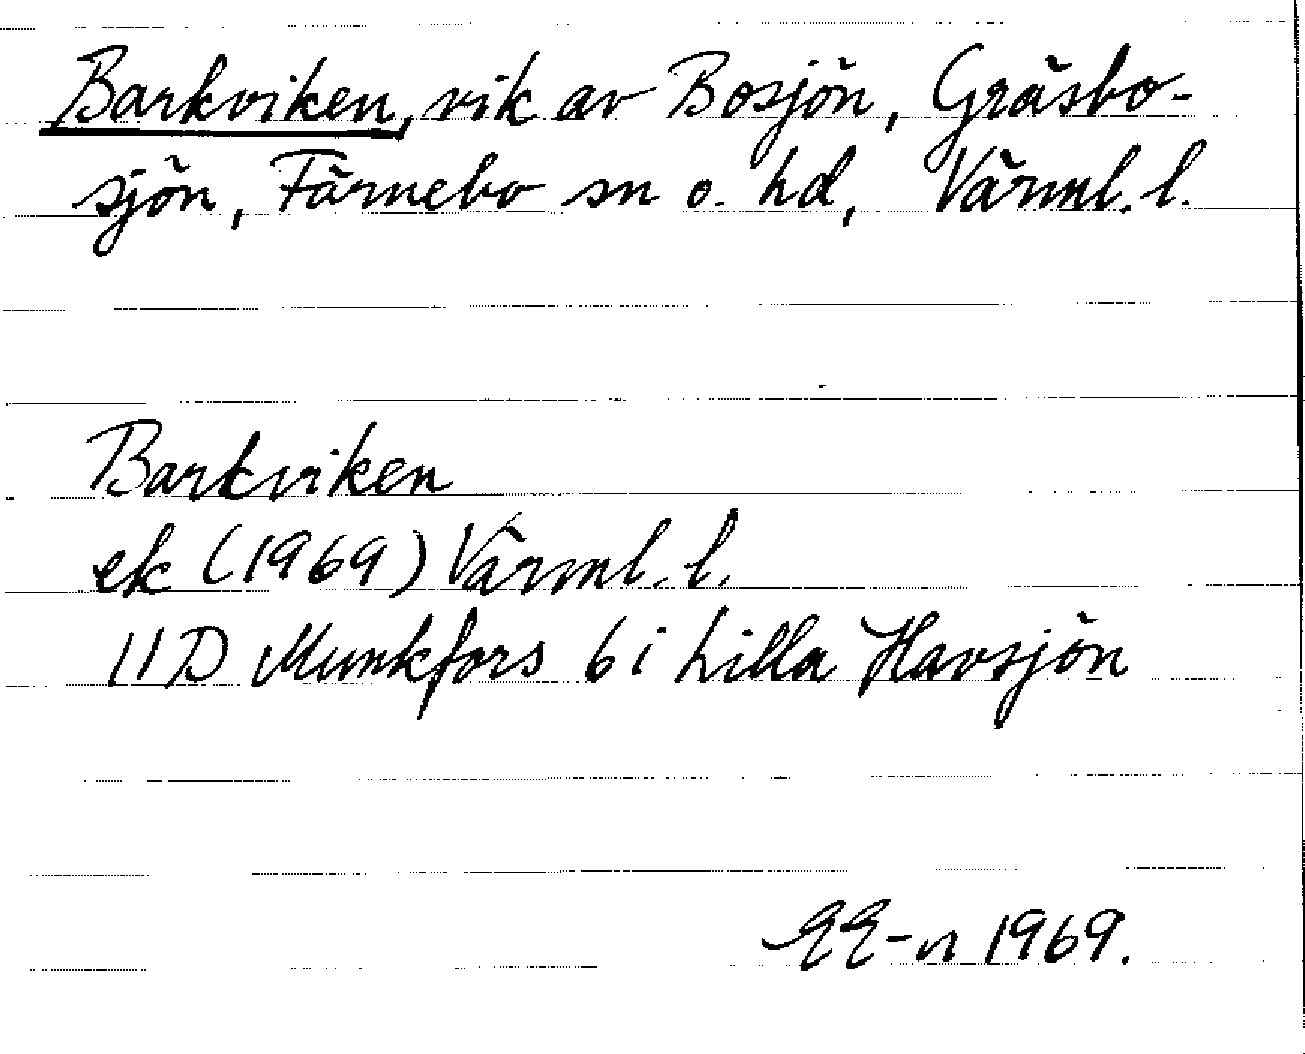 Barkviken, vik av Bosjön, Gräsbo-
sjön, Färnebo sn o. hd, Värml. l.
Barkviken
ek (1969) Värml. l.
11D Munkfors 6i Lilla Havsjön
EE-n 1969.